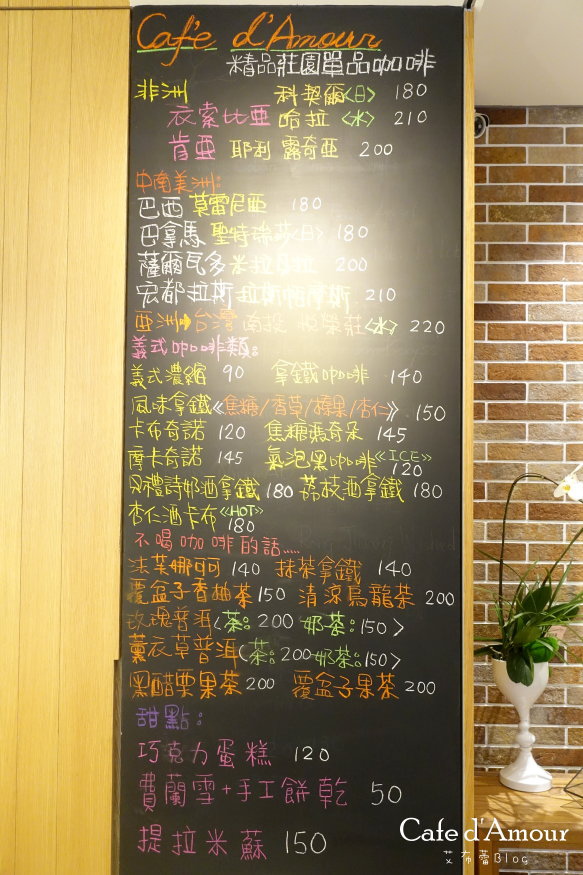 Cafe d'Amour
精品莊園單品咖啡
非洲 科契爾<日> 180
衣索比亞 哈拉 <水> 210
肯亞 耶利 露奇亞 200
中南美洲:
巴西 莫雷尼亞 180
巴拿馬 聖特 <日> 180
薩爾瓦多 米拉 200
宏都拉斯 拉斯 210
亞洲→台灣 南投 悅榮莊<水> 220
義式咖啡類:
義式濃縮 90 拿鐵咖啡 140
風味拿鐵《焦糖/香草/榛果/杏仁》 150
卡布奇諾 120 焦糖瑪奇朵 145
摩卡奇諾 145 氣泡黑咖啡《ICE》 120
貝禮詩奶酒拿鐵 180 荔枝酒拿鐵 180
杏仁酒卡布《HOT》 180
不喝咖啡的話.....
法芙娜可可 140 抹茶拿鐵 140
覆盆子香柚茶 150 清涼烏龍茶 200
玫瑰普洱<茶:200 奶茶:150>
薰衣草普洱(茶:200 奶茶:150>
黑醋栗果茶 200 覆盆子果茶 200
甜點:
巧克力蛋糕 120
費蘭雪+手工餅乾 50
提拉米蘇 150
Cafe d'Amour
艾布蕾Blog